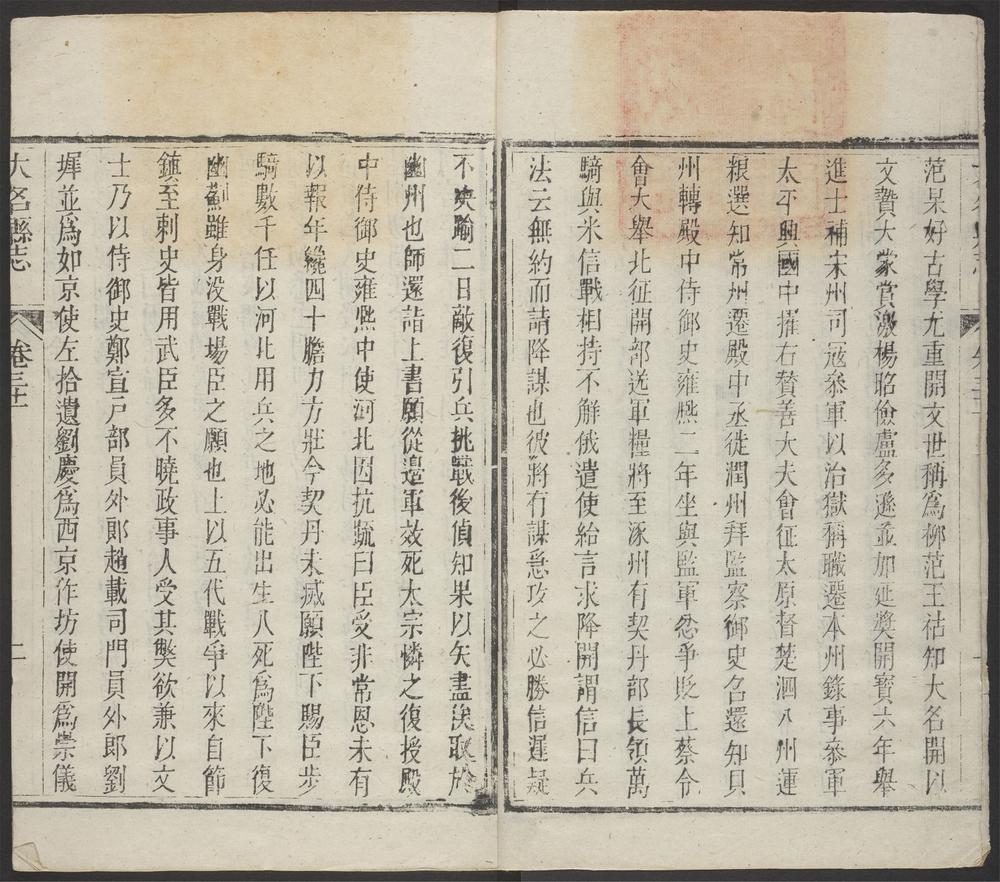 范杲好古學尤重開文世稱爲柳范王祜知大名開以
文贄大蒙賞激楊昭儉盧多遜並加延奬開寶六年舉
進士補宋州司寇叅軍以治獄稱職遷本州錄事叅軍
太平興國中擢右贊善大夫會征太原督楚泗八州運
粮選知常州遷殿中丞徙潤州拜監察御史召還知貝
州轉殿中侍御史雍熈二年坐與監軍忿爭貶上蔡令
會大舉北征開部送軍糧將至涿州有契丹部長領萬
騎與米信戰相持不解俄遣使紿言求降開謂信曰兵
法云無約而請降謀也彼將有謀急攻之必勝信遲疑
不決踰二日敵復引兵挑戰後偵知果以矢盡俟取於
幽州也師還詣上書願從邊軍效死太宗憐之復授殿
中侍御史雍熈中使河北因抗䟽曰臣受非常恩未有
以報年纔四十膽力方壯今契丹未滅願陛下賜臣步
騎數千任以河北用兵之地必能出生入死爲陛下復
幽薊雖身没戰場臣之願也上以五代戰爭以來自節
鎮至刺史皆用武臣多不曉政事人受其獘欲兼以文
士乃以侍御史鄭宣戸部員外郎趙載司門員外郎劉
墀並爲如京使左拾遺劉慶爲西京作坊使開爲崇儀
大名縣志
卷三十
二